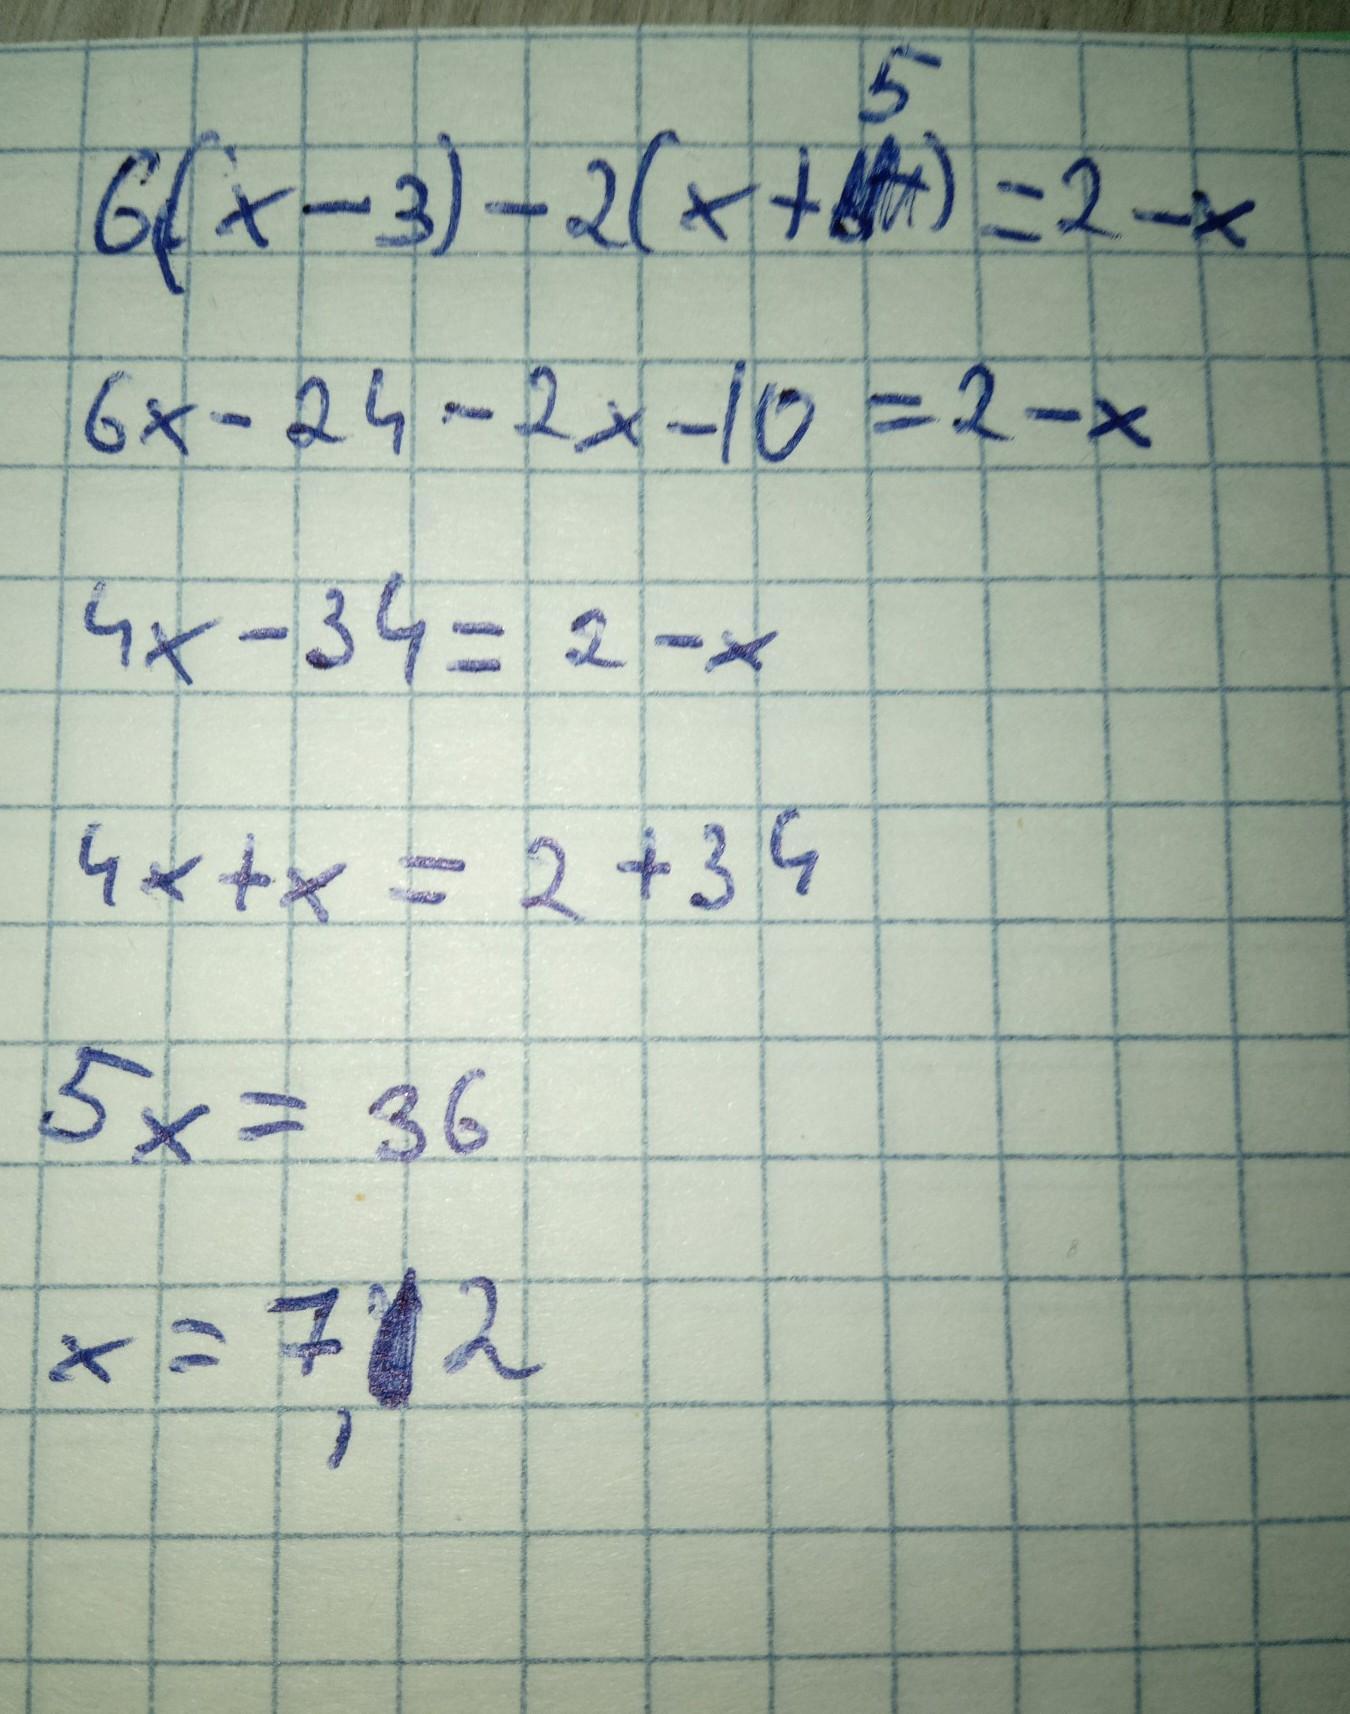 6(x-3)-2(x+5)=2-x
6x-24-2x-10=2-x
4x-34=2-x
4x+x=2+34
5x=36
x=7,2